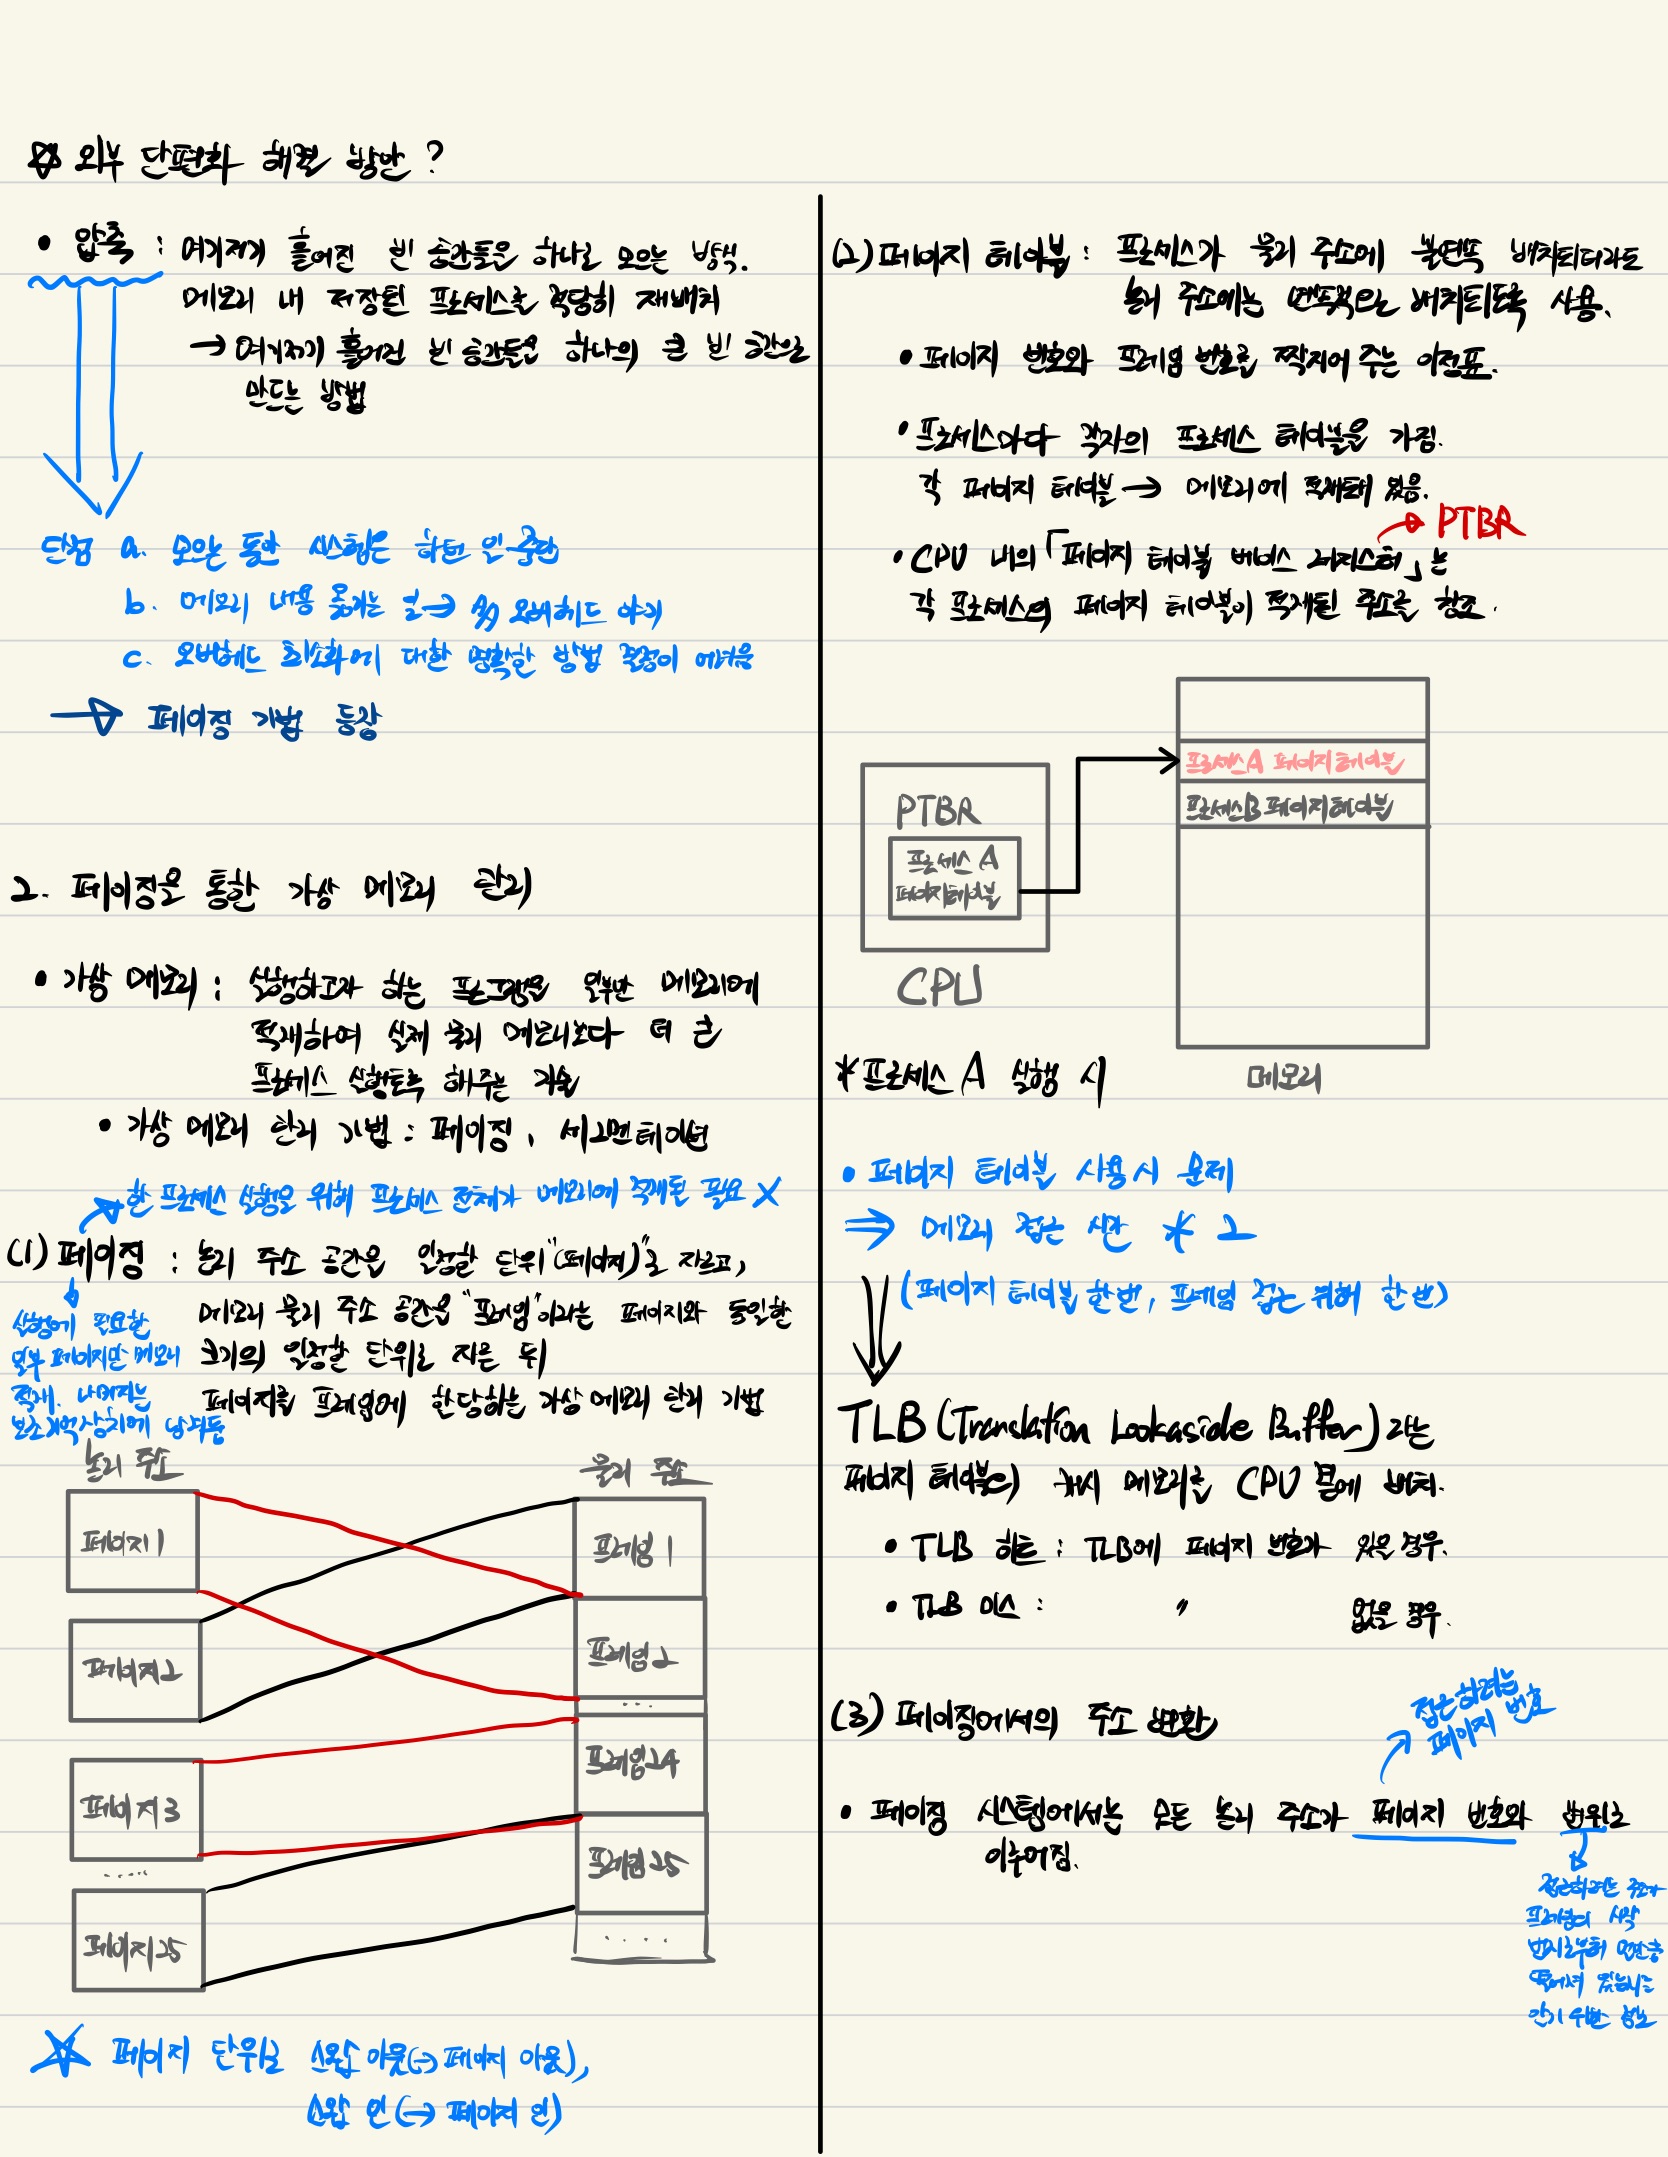 ☆ 외부 단편화 해결 방안?
• 압축 : 여기저기 흩어진 빈 공간들을 하나로 모으는 방식.
메모리 내 저장된 프로세스를 적당히 재배치
→ 여기저기 흩어진 빈 공간들을 하나의 큰 빈 공간으로
만드는 방법
단점 a. 모으는 동안 시스템은 하던 일 중단
b. 메모리 내용 옮기는 일 → 多 오버헤드 야기
c. 오버헤드 최소화에 대한 명확한 방법 결정이 어려움
→ 페이징 기법 등장
2. 페이징을 통한 가상 메모리 관리
• 가상 메모리 : 실행하고자 하는 프로그램을 일부만 메모리에
적재하여 실제 물리 메모리보다 더 큰
프로세스 실행토록 해주는 기술
• 가상 메모리 관리 기법 : 페이징, 세그멘테이션
한 프로세스 실행을 위해 프로세스 전체가 메모리에 적재될 필요 X
(1) 페이징 : 논리 주소 공간을 일정한 단위"(페이지)"로 자르고,
메모리 물리 주소 공간을 "프레임"이라는 페이지와 동일한
크기의 일정한 단위로 자른 뒤
페이지를 프레임에 할당하는 가상 메모리 관리 기법
실행에 필요한
일부 페이지만 메모리
적재. 나머지는
보조기억장치에 남겨둠
논리 주소
물리 주소
페이지1
페이지2
페이지3
.....
페이지25
프레임1
프레임2
...
프레임24
프레임25
....
☆ 페이지 단위로 스왑 아웃(→페이지 아웃),
스왑 인(→ 페이지 인)
(2) 페이지 테이블 : 프로세스가 물리 주소에 불연속 배치되더라도
논리 주소에는 연속적으로 배치되도록 사용.
• 페이지 번호와 프레임 번호를 짝지어 주는 이정표.
• 프로세스마다 각자의 프로세스 테이블을 가짐.
각 페이지 테이블 → 메모리에 적재돼 있음.
→ PTBR
• CPU 내의 「페이지 테이블 베이스 레지스터」는
각 프로세스의 페이지 테이블이 적재된 주소를 참조.
PTBR
프로세스 A
페이지테이블
CPU
프로세스A 페이지테이블
프로세스B 페이지테이블
메모리
*프로세스 A 실행 시
• 페이지 테이블 사용 시 문제
⇒ 메모리 접근 시간 * 2
(페이지 테이블 한번, 프레임 접근 위해 한번)
TLB (Translation Lookaside Buffer)라는
페이지 테이블의 캐시 메모리를 CPU 곁에 배치.
• TLB 히트 : TLB에 페이지 번호가 있을 경우.
• TLB 미스 : 〃 없을 경우.
(3) 페이징에서의 주소 변환
접근하려는
페이지 번호
• 페이징 시스템에서는 모든 논리 주소가 페이지 번호와 변위로
이루어짐.
접근하려는 주소가
프레임의 시작
번지로부터 얼만큼
떨어져 있는지는
알기 위한 정보